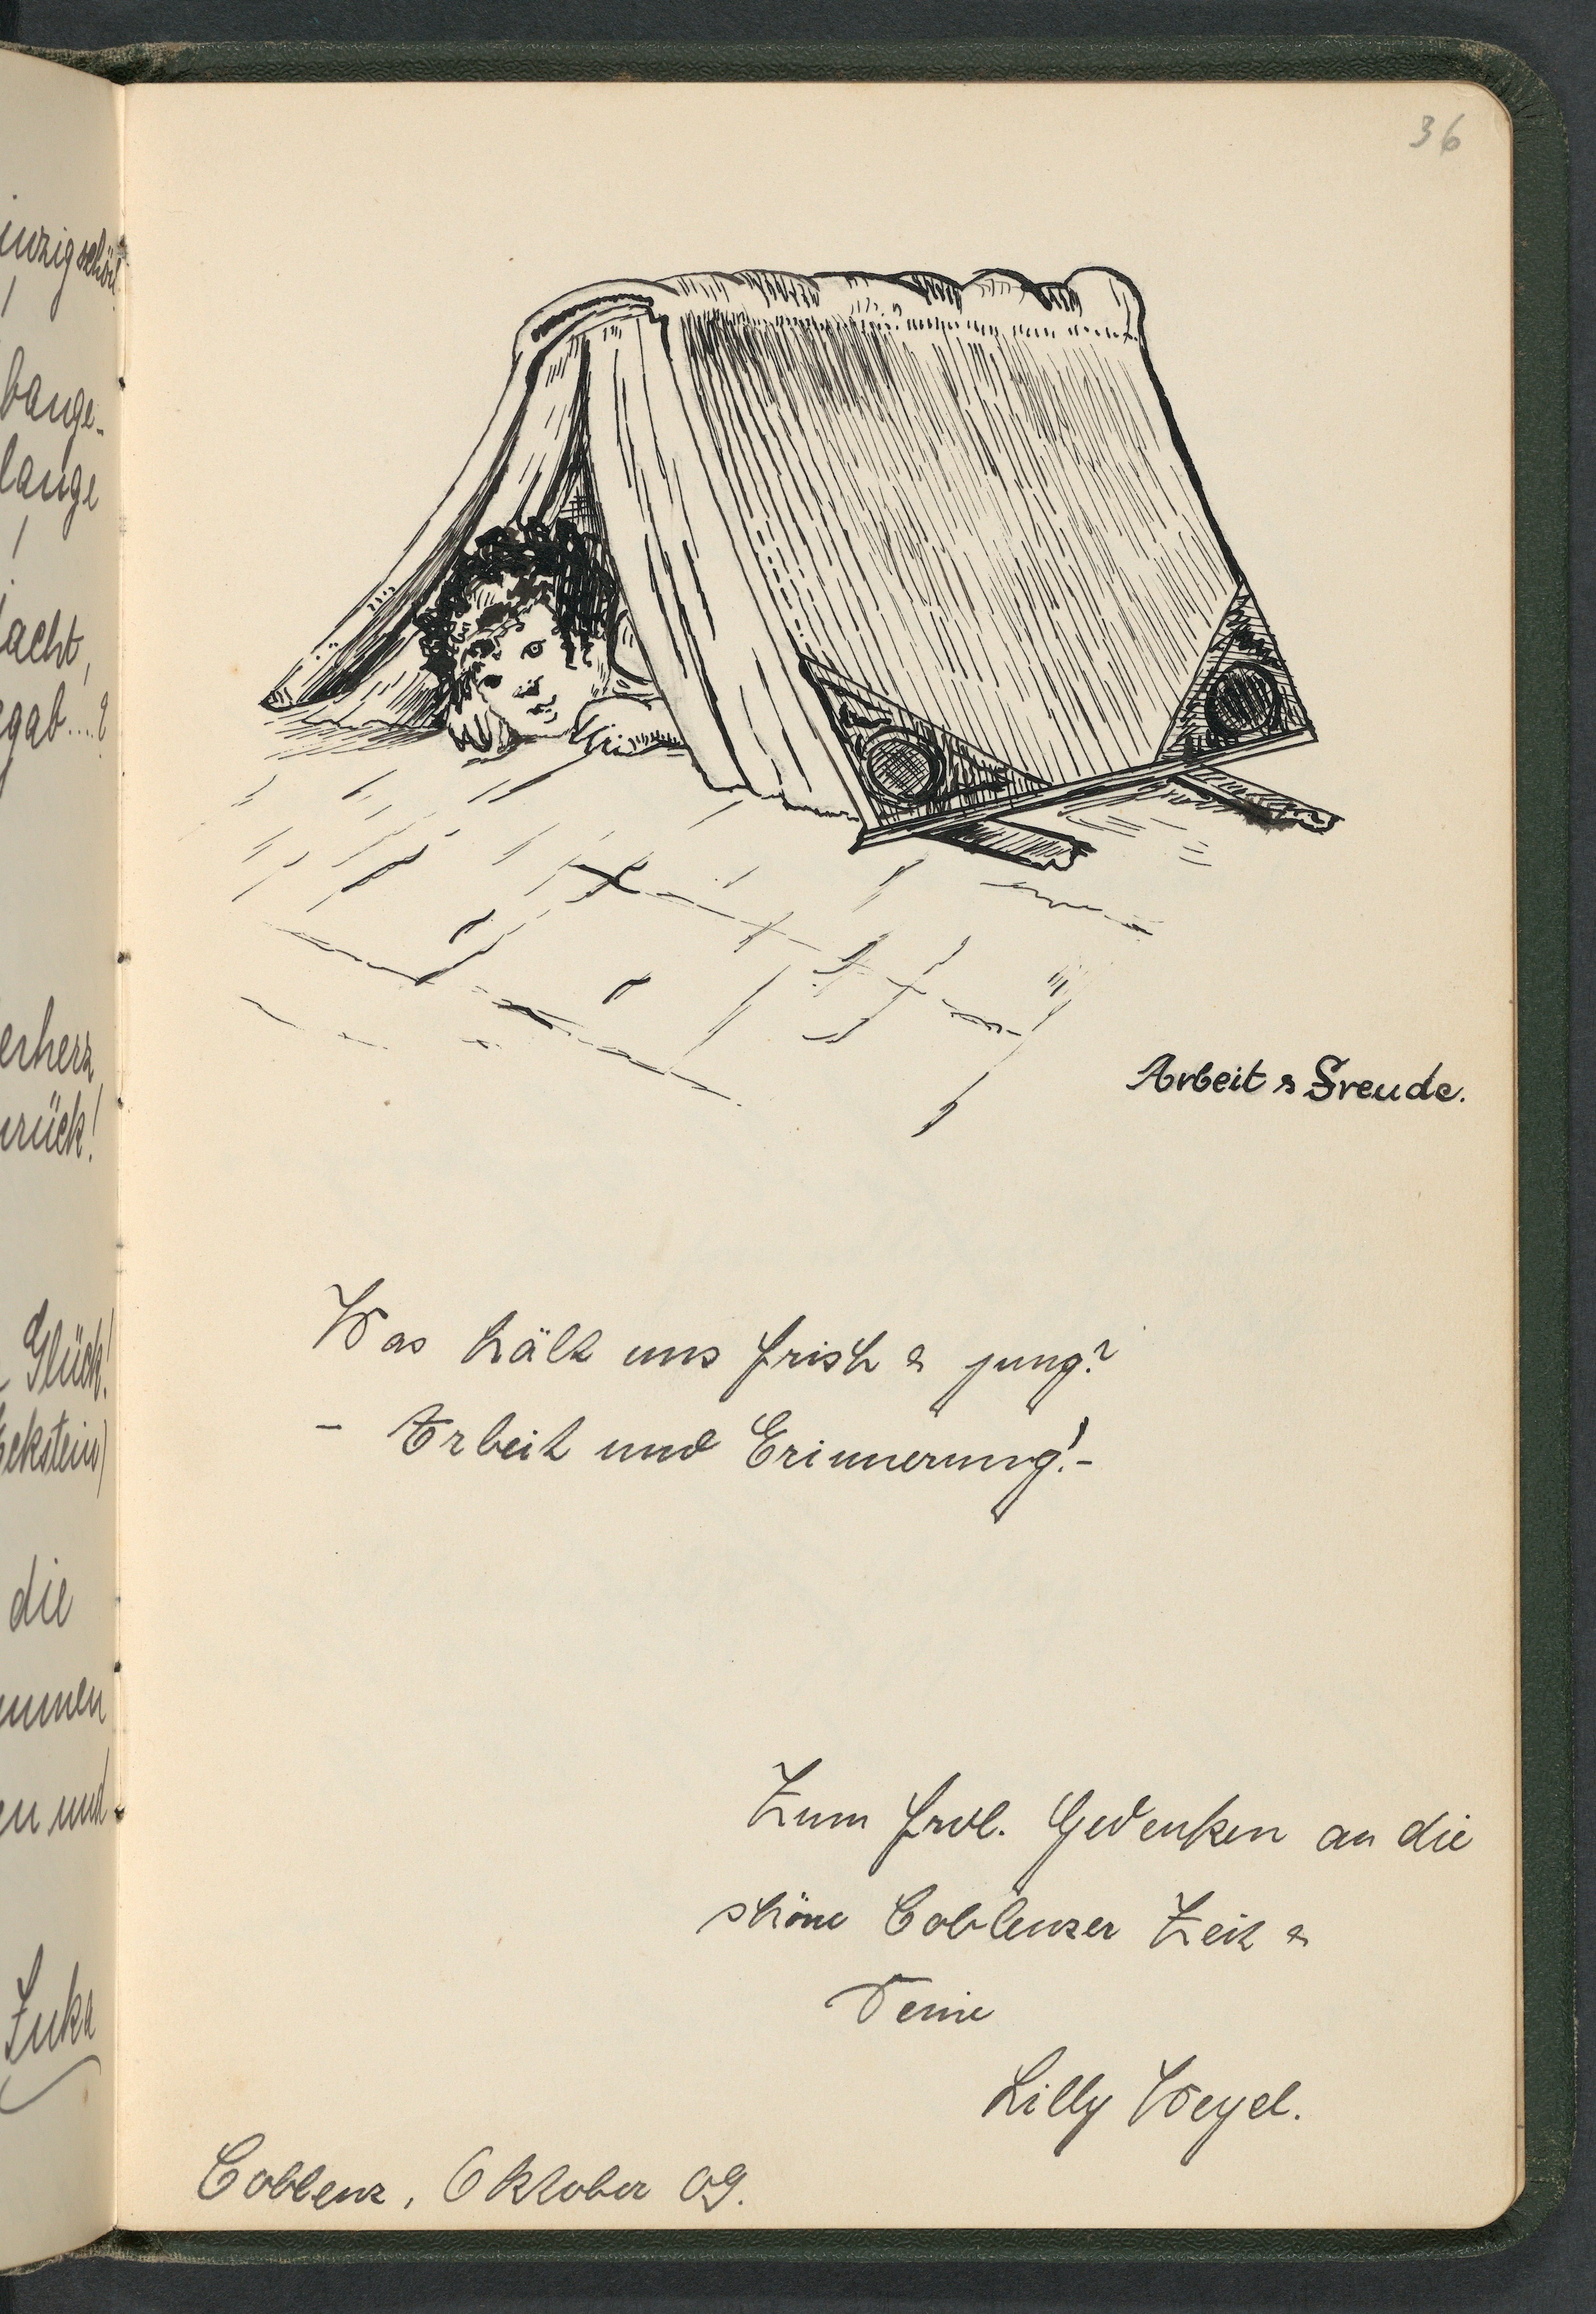 inzig schön!
bange-
lange
!
acht,
gab....?
erherz
urück!
Glück!
Eckstein)
die
ummen
en und
Zuka
36
Arbeit & Freude.
Was hält uns frish & jung?
- Arbeit und Erinnerung! -
Zum frdl. Gedenken an die
shöne Coblenzer Zeit &
Deine
Lilly Weyel.
Coblenz, Oktober 09.